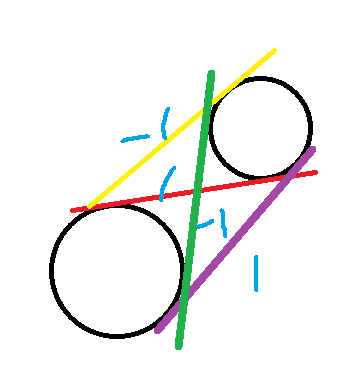 -1
1
-1
1